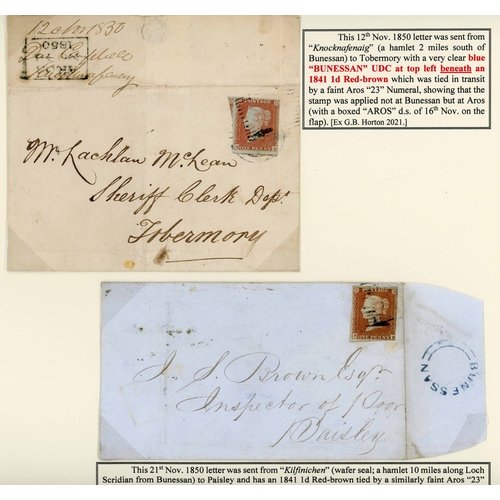 This 12th Nov. 1850 letter was sent from
"Knocknafenaig" (a hamlet 2 miles south of
Bunessan) to Tobermory with a very clear blue
"BUNESSAN" UDC at top left beneath an
1841 1d Red-brown which was tied in transit
by a faint Aros "23" Numeral, showing that the
stamp was applied not at Bunessan but at Aros
(with a boxed "AROS" d.s. of 16th Nov. on the
flap). [Ex G.B. Horton 2021.]
12 Nov 1850
AROS
1850
POSTAGE
ONE PENNY
Mr. Lachlan McLean
Sheriff Clerk Dept.
Tobermory
POSTAGE
ONE PENNY
J. S. Brown Esqr.
Inspector of Poor
Paisley
BUNESSAN
This 21st Nov. 1850 letter was sent from "Kilfinichen" (wafer seal; a hamlet 10 miles along Loch
Scridian from Bunessan) to Paisley and has an 1841 1d Red-brown tied by a similarly faint Aros "23"